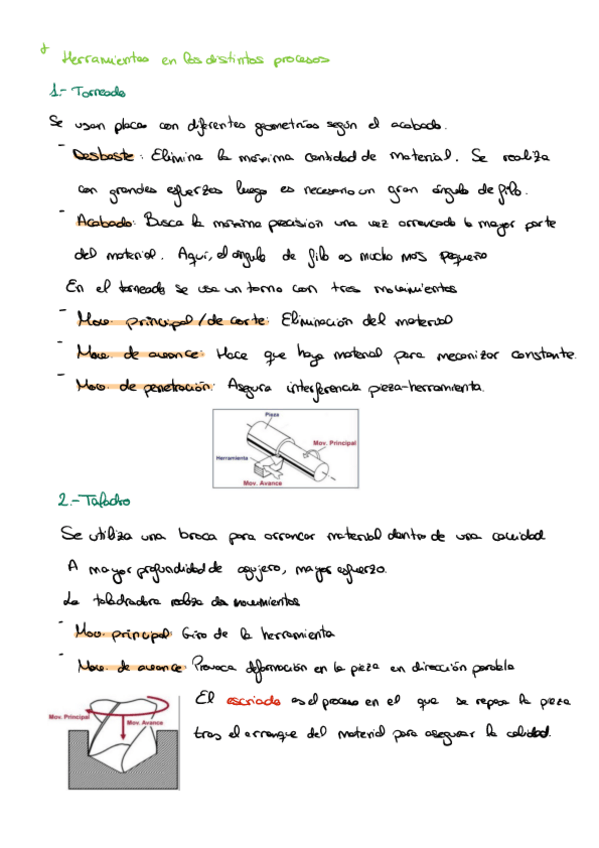 Herramientas en los distintos procesos
1.- Torneado
Se usan placas con diferentes geometrías según el acabado.
- Desbaste: Elimina la máxima cantidad de material. Se realiza
con grandes esfuerzos luego es necesario un gran ángulo de filo.
- Acabado: Busca la máxima precisión una vez arrancado la mayor parte
del material. Aquí, el ángulo de filo es mucho más pequeño
En el torneado se usa un torno con tres movimientos
- Mov. principal / de corte: Eliminación del material
- Mov. de avance: Hace que haya material para mecanizar constante.
- Mov. de penetración: Asegura interferencia pieza-herramienta.
Pieza
Mov. Principal
Herramienta
Mov. Avance
2.- Taladro
Se utiliza una broca para arrancar material dentro de una cavidad
A mayor profundidad de agujero, mayor esfuerzo.
La taladradora realiza dos movimientos
- Mov. principal: Giro de la herramienta
- Mov. de avance: Provoca deformación en la pieza en dirección paralela
Mov. Principal
Mov. Avance
El escriado es el proceso en el que se repasa la pieza
tras el arranque del material para asegurar la calidad.